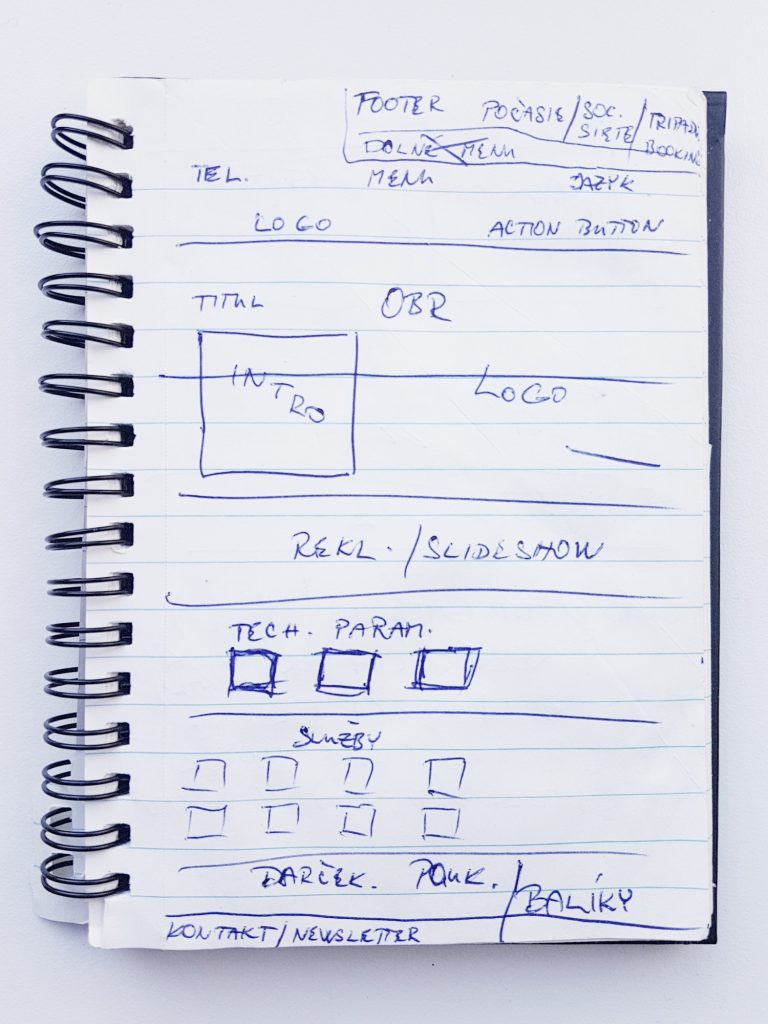 FOOTER POČASIE / SOC. SIETE / TRIPADV. BOOKING
DOLNÉ MENU
TEL. MENU JAZYK
LOGO ACTION BUTTON
TITUL OBR
INTRO LOGO
REKL. / SLIDESHOW
TECH. PARAM.
SLUŽBY
DARČEK. POUK. / BALÍKY
KONTAKT / NEWSLETTER